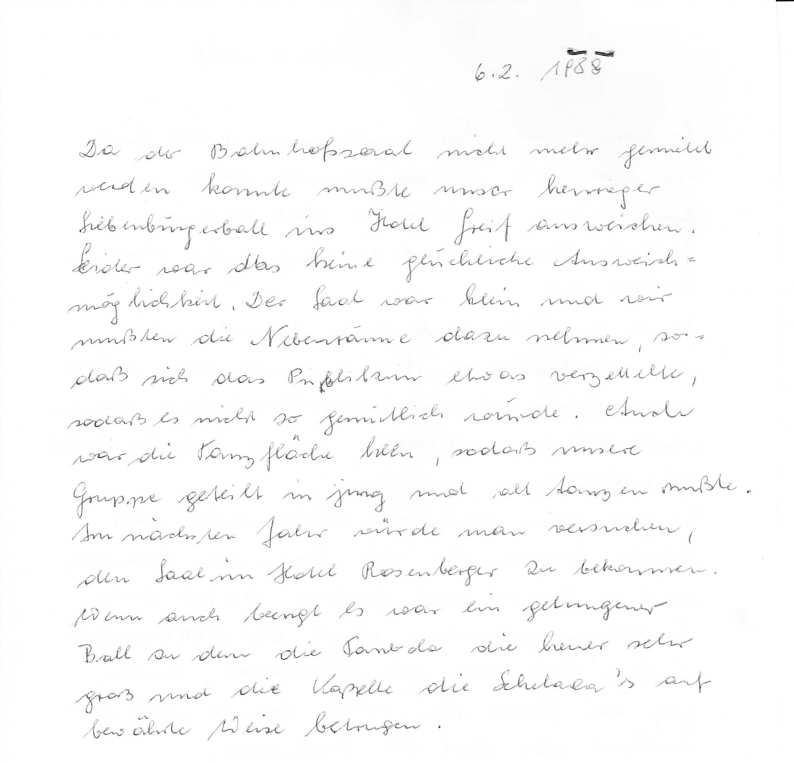 6.2. 1988
Da der Bahnhofssaal nicht mehr gemietet
werden konnte mußte unser heuriger
Siebenbürgerball ins Hotel Greif ausweichen.
Leider war das keine glückliche Ausweich=
möglichkeit. Der Saal war klein und wir
mußten die Nebenräume dazu nehmen, so=
daß sich das Publikum etwas verzettelte,
sodaß es nicht so gemütlich wurde. Auch
war die Tanzfläche klein, sodaß unsere
Gruppe geteilt in jung und alt tanzen mußte.
Im nächsten Jahr würde man versuchen,
den Saal im Hotel Rosenberger zu bekommen.
Wenn auch beengt es war ein gelungener
Ball zu dem die Tombola die heuer sehr
groß und die Kapelle die auf
bewährte Weise betrugen.